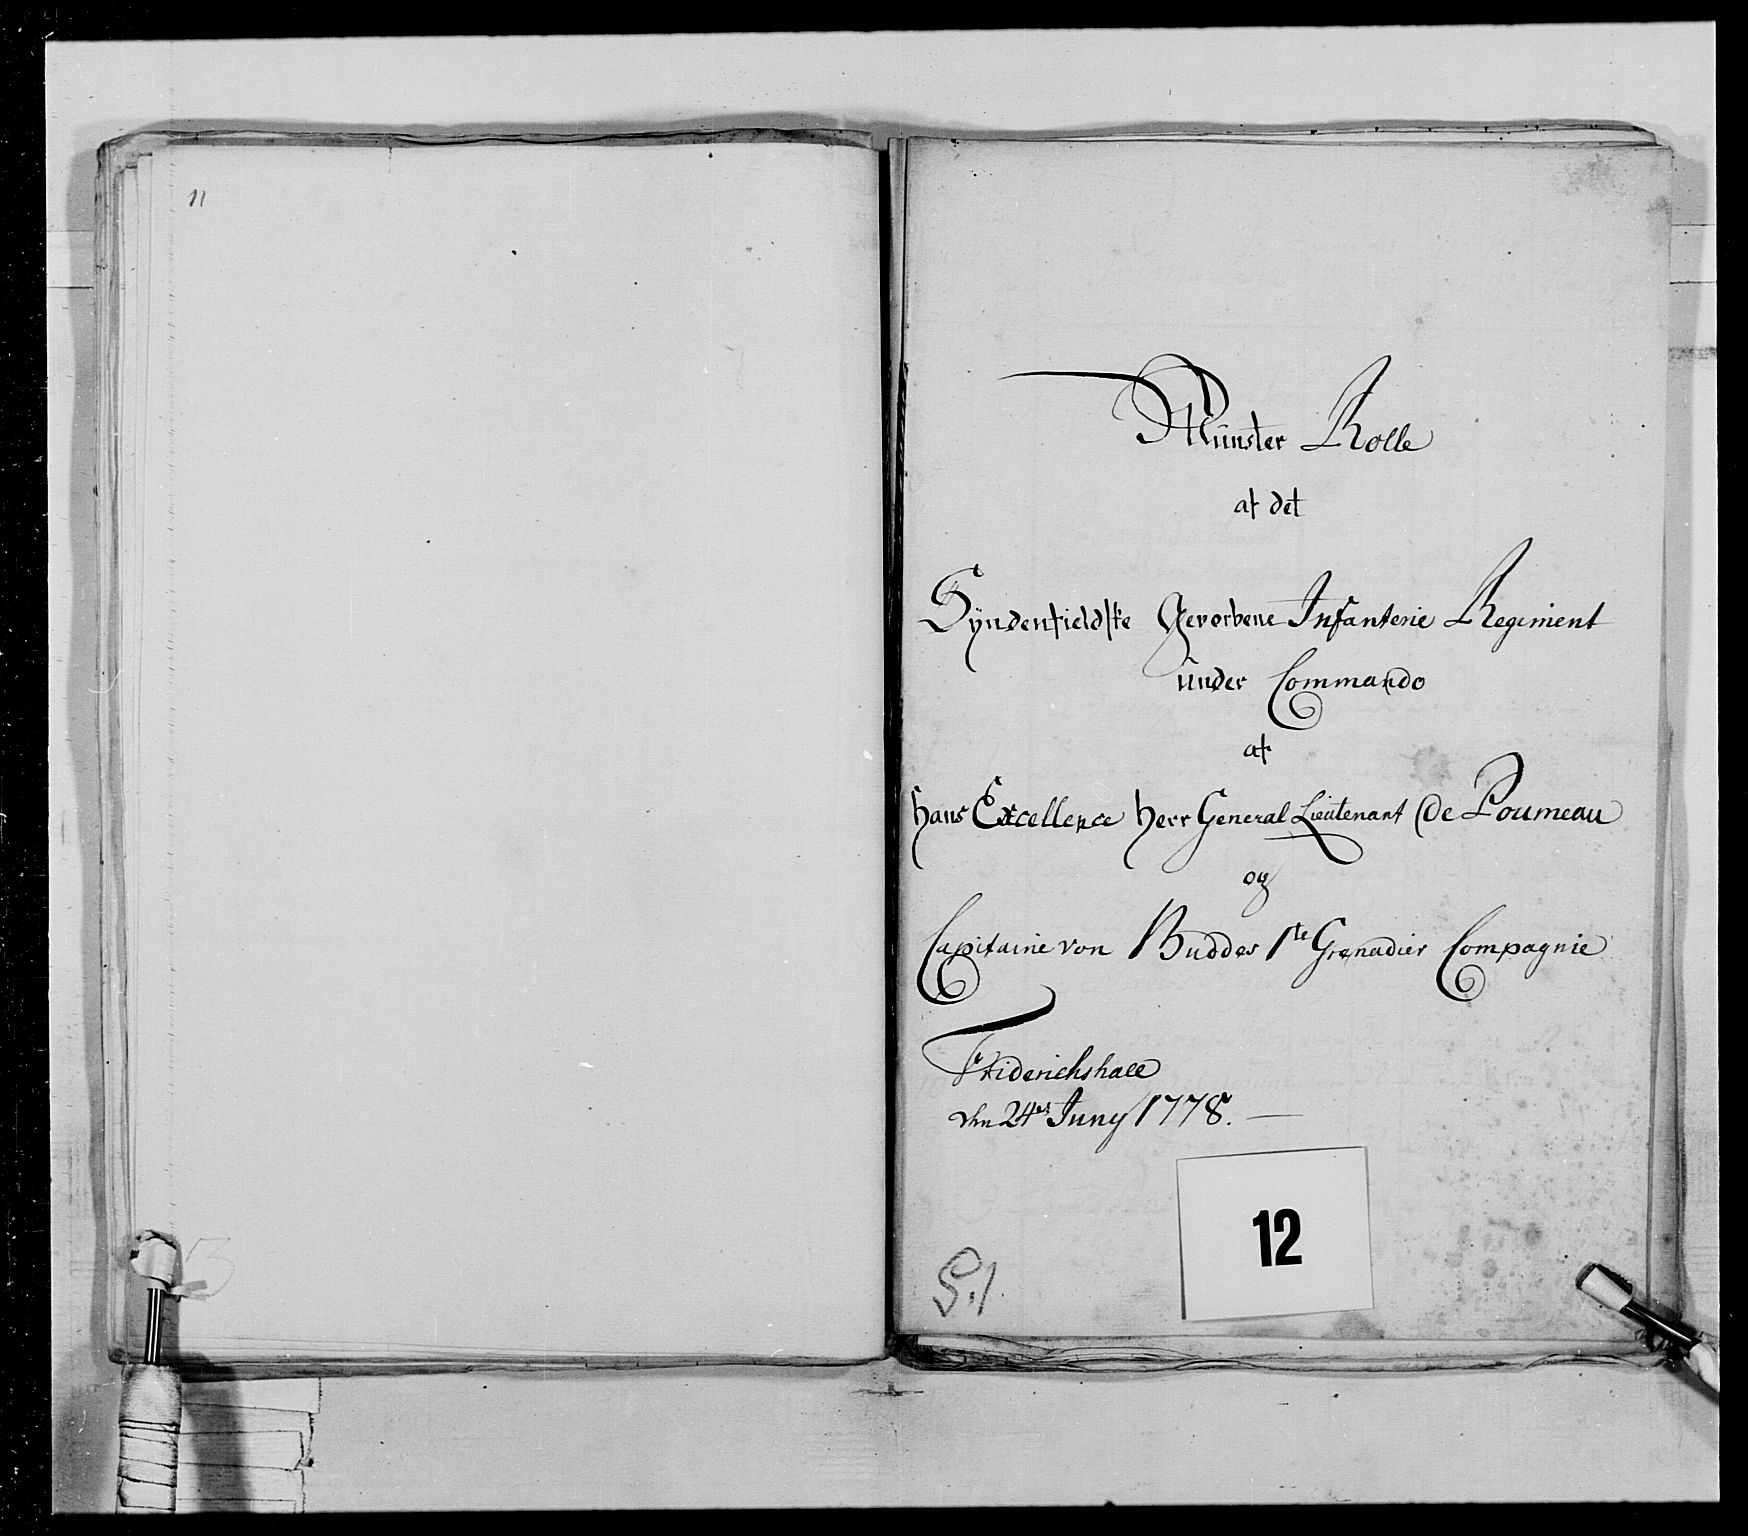 11
Münster Rolle
af det
Syndenfieldske Gevorbene Infanterie Regiment
ünder Commando
af
hans Excellence herr General Lieutenant de Poumeau
og
Capitaine von Buddes 1te Grenadier Compagnie
Friderichshall
dhn 24de Juny 1778.
12
S.1.